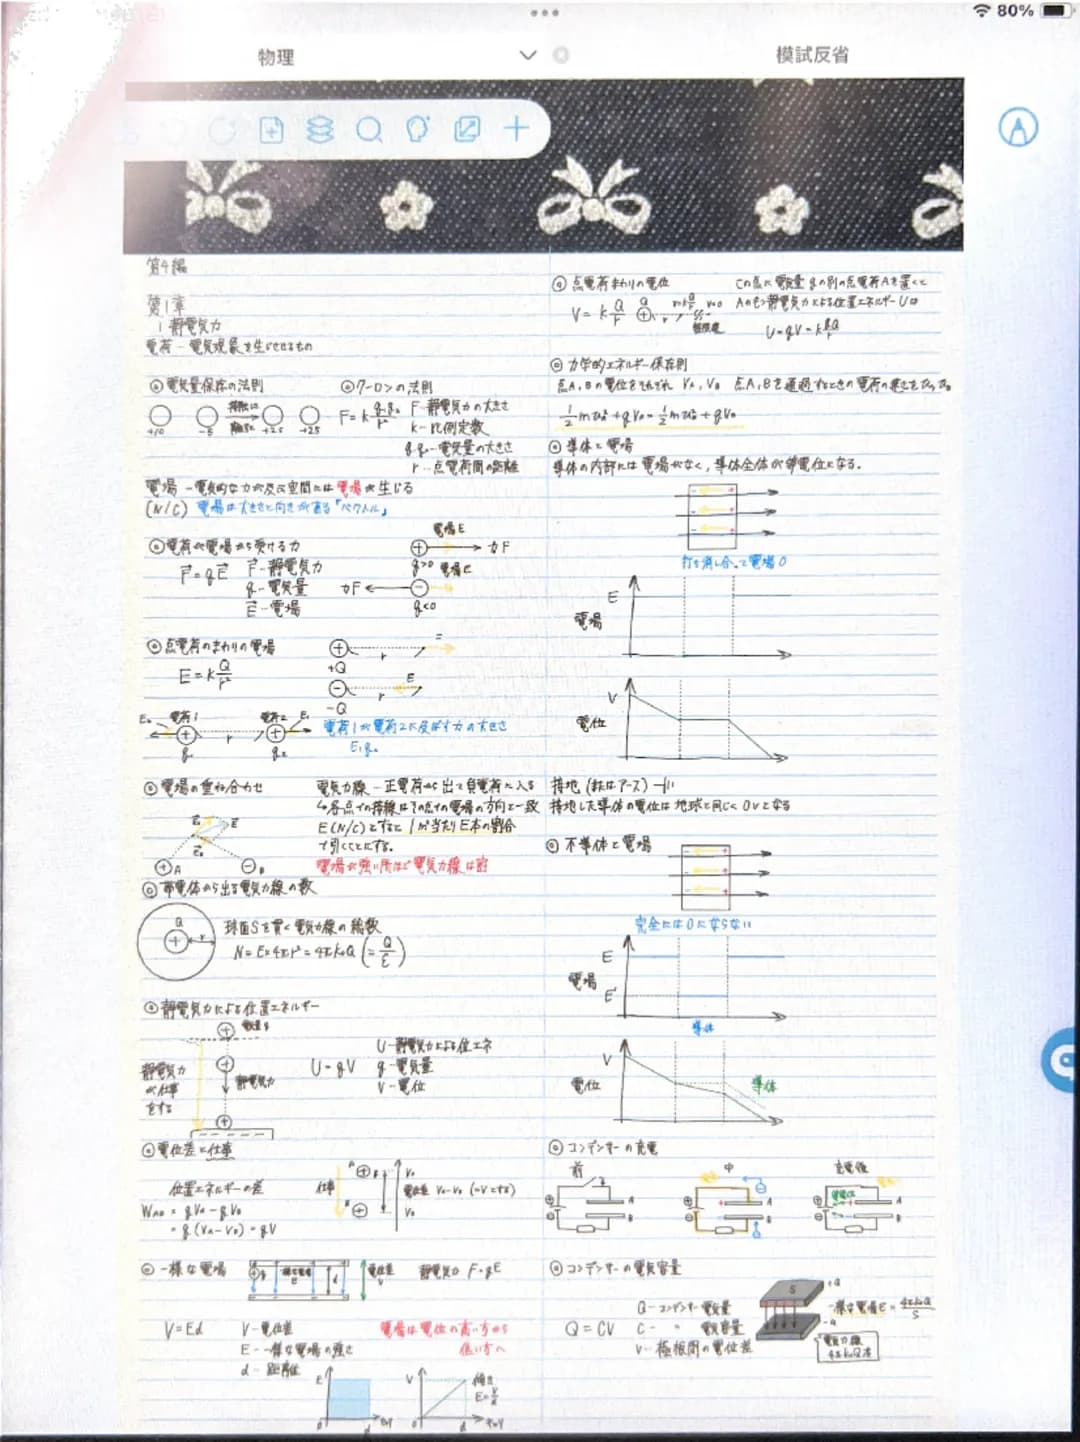 80%
物理
模試反省
第4編
第1章
1 静電気力
電荷 - 電気現象を生じさせるもの
◎電気量保存の法則
接触させ
離すと
+10
-5
+2.5
+2.5
◎クーロンの法則
F - 静電気力の大きさ
k - 比例定数
電気量の大きさ
r - 点電荷間の距離
電場 - 電気的な力が及ぶ空間には電場が生じる
(N/C) 電場は大きさと向きがある「ベクトル」
◎電荷が電場から受ける力
F=qE
F - 静電気力
q - 電気量
E - 電場
電場E
力F
q>0
電場E
力F
q<0
◎点電荷のまわりの電場
E=kQ/r²
+Q
r
E
r
-Q
電荷1
電荷2
r
電荷1が電荷2に及ぼす力の大きさ
◎電場の重ね合わせ
E
A
B
電気力線 - 正電荷から出て負電荷に入る
↳各点での接線はその点での電場の方向と一致
E(N/C)とすると 1m²当たりE本の割合
で引くことにする。
電場が強い所ほど電気力線は密
◎帯電体から出る電気力線の数
Q
r
球面Sを貫く電気力線の総数
N=E×4πr²=4πk₀Q(=Q/ε)
◎静電気力による位置エネルギー
静電気力
が仕事
をする
静電気力
U=qV
U - 静電気力による位エネ
q - 電気量
V - 電位
◎電位差と仕事
位置エネルギーの差
= q(VA-VB) = qV
仕事
電位差 VA-VB (=Vとする)
◎一様な電場
d
電位差
V
静電気力 F=qE
V=Ed
V - 電位差
E - 一様な電場の強さ
d - 距離
電場は電位の高い方から
低い方へ
E
d
V
d
傾き
◎点電荷まわりの電位
V=kQ/r
Cの点に電気量qの別の点電荷Aを置くと
Aのもつ静電気力による位置エネルギーUは
U=qV=kqQ/r
◎力学的エネルギー保存則
◎導体と電場
導体の内部には電場がなく、導体全体が等電位になる。
打ち消し合って電場0
E
電場
V
電位
接地(またはアース)
接地した導体の電位は地球と同じく0Vとなる
◎不導体と電場
完全には0にならない
E
電場
E'
導体
V
電位
導体
◎コンデンサーの充電
前
中
充電後
A
B
A
B
A
B
◎コンデンサーの電気容量
Q=CV
Q - コンデンサー電気量
C - 〃 電気容量
V - 極板間の電位差
S
+Q
-Q
一様な電場E=4πk₀Q/S
電気力線
4πk₀Q本